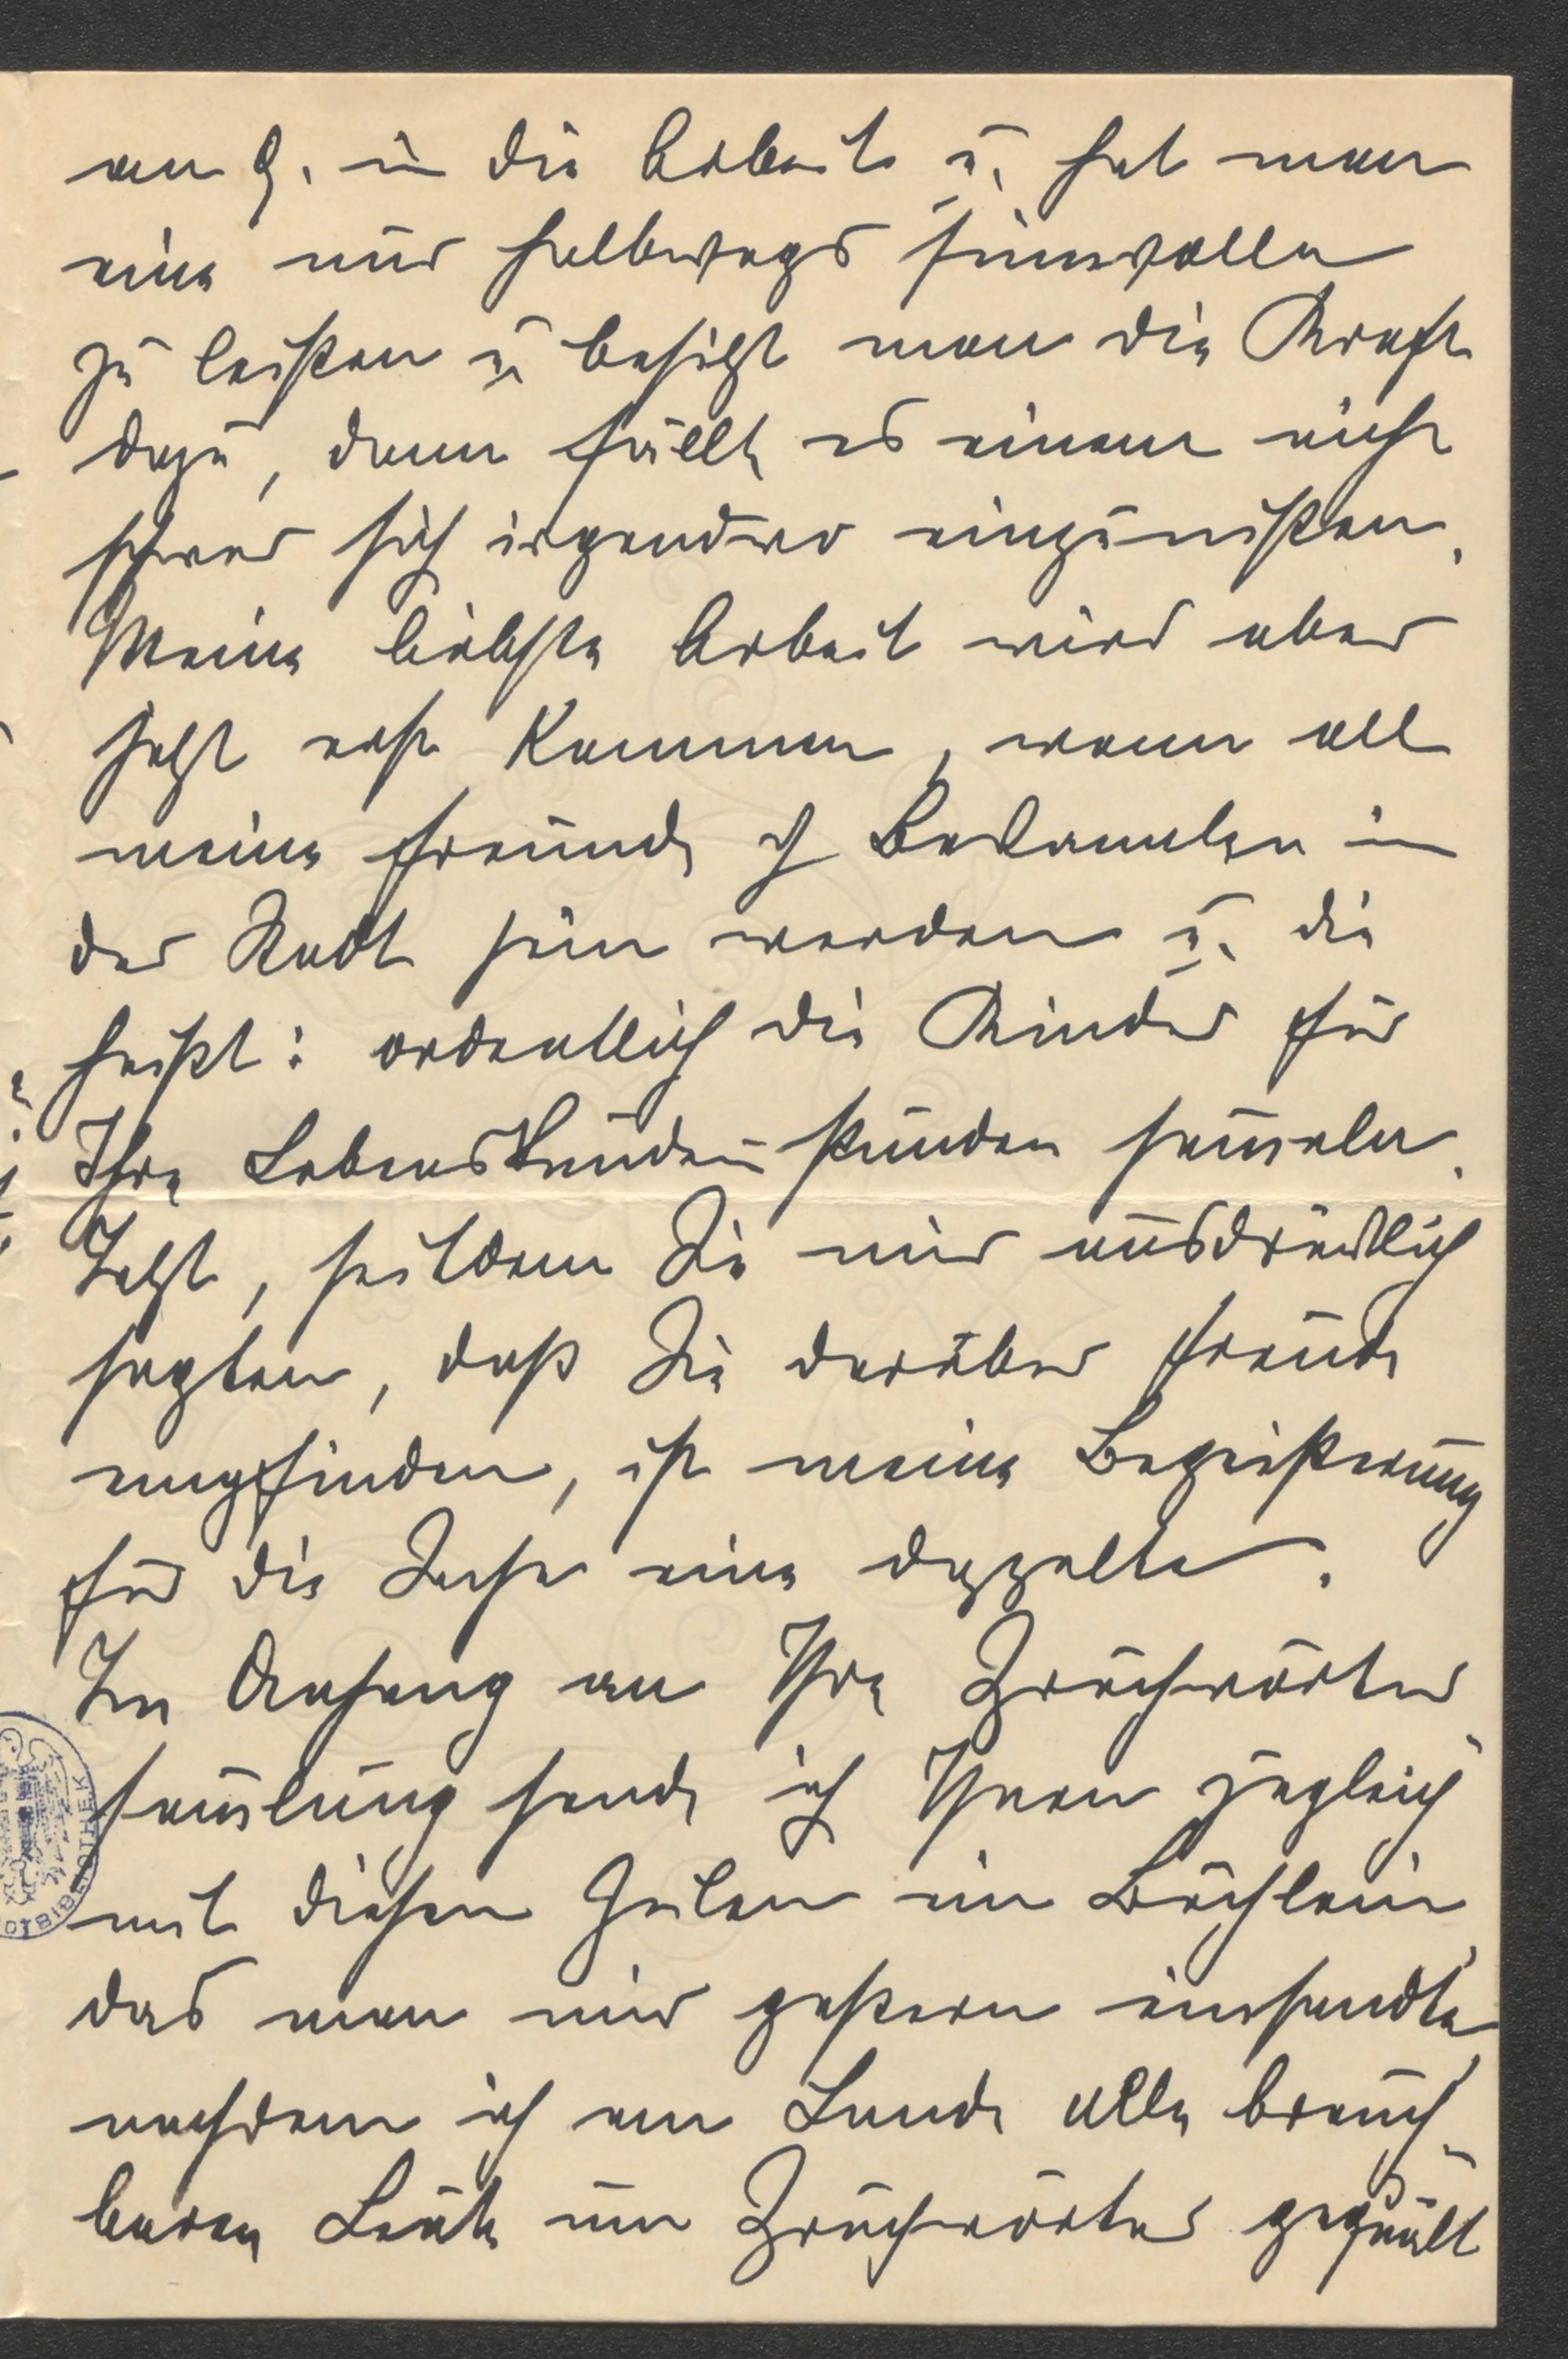 an G. in die Arbeit u. hat man
eine nur halbwegs sinnvolle
zu leisten u. besitzt man die Kraft
dazu, dann fällt es einem nicht
schwer sich irgendwo einzunisten.
Meine liebste Arbeit wird aber
jetzt erst kommen, wenn all
meine Freunde & Bekannten in
der Stadt sein werden u. die
heißt: ordentlich die Kinder für
Ihre Lebenskunden stunden sam̄eln.
Jetzt, seitdem Sie mir ausdrücklich
sagten, daß Sie darüber Freude
empfinden, ist meine Begeisterung
für die Sache eine doppelte.
Im Anhang an Ihre Sprüchwörter
sam̄lung sende ich Ihnen zugleich
mit diesen Zeilen ein Büchlein,
das man mir gestern einsandte,
nachdem ich am Lande alle brauch-
baren Leute um Sprüchwörter gequält
BIBLIOTHEK